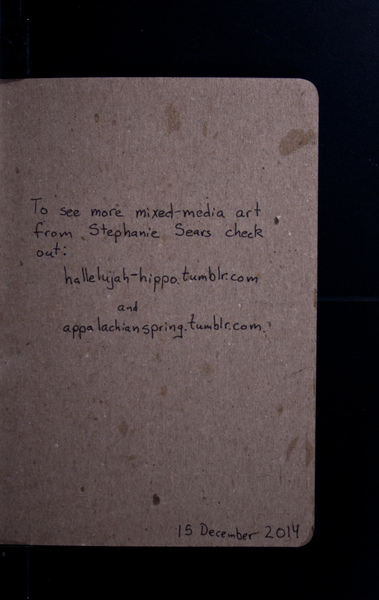 To see more mixed-media art
from Stephanie Sears check
out:
hallelujah-hippo.tumblr.com
and
appalachianspring.tumblr.com.
15 December 2014